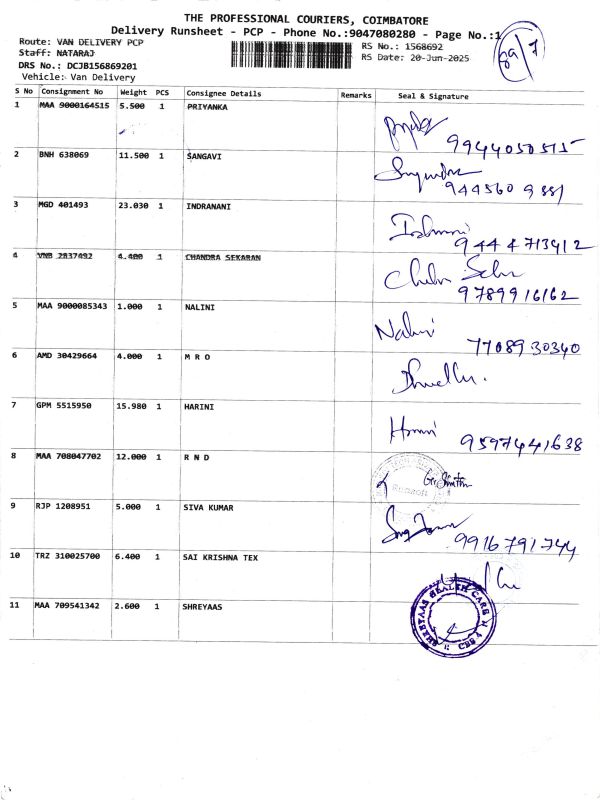 THE PROFESSIONAL COURIERS, COIMBATORE
Delivery Runsheet - PCP - Phone No.:9047080280 - Page No.:1
Route: VAN DELIVERY PCP
Staff: NATARAJ
DRS No.: DCJB156869201
Vehicle: Van Delivery
RS No.: 1568692
RS Date: 20-Jun-2025
S No Consignment No Weight PCS Consignee Details Remarks Seal & Signature
1 MAA 9000164515 5.500 1 PRIYANKA
9944050515
2 BNH 638069 11.500 1 SANGAVI
9445609881
3 MGD 401493 23.030 1 INDRANANI
9444713412
4 VNB 2837492 4.400 1 CHANDRA SEKARAN
9789916162
5 MAA 9000085343 1.000 1 NALINI
Nalini
7708930340
6 AMD 30429664 4.000 1 M R O
7 GPM 5515950 15.980 1 HARINI
9597441638
8 MAA 708047702 12.000 1 R N D
9 RJP 1208951 5.000 1 SIVA KUMAR
9916791744
10 TRZ 310025700 6.400 1 SAI KRISHNA TEX
11 MAA 709541342 2.600 1 SHREYAAS
SHREYAAS HEALTH CARE